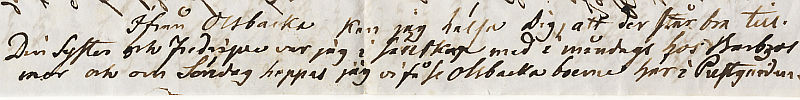 Ifrån Olsbacka kan jag hälsa Dig, att der står bra till.
Din Syster och Fredrique var jag i sällskap med i måndags hos
mor och om Söndag hoppas jag vi få se Olsbacka boerne här i Prestgården.